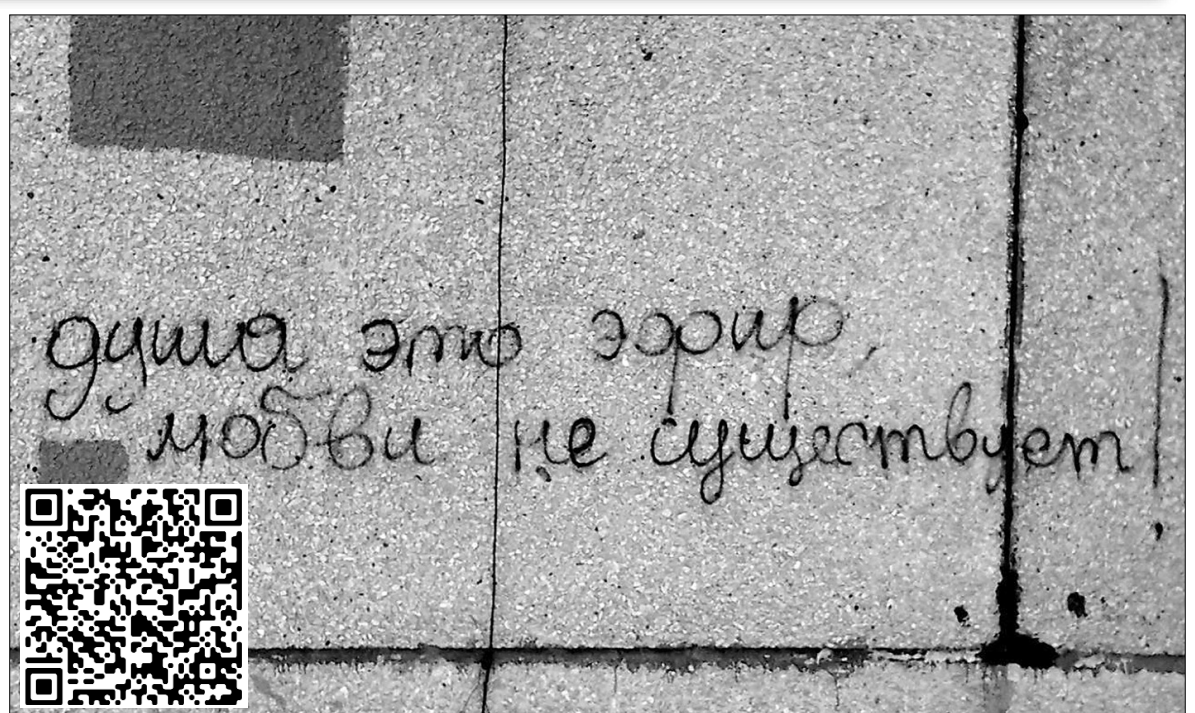 душа это эфир,
любви не существует!